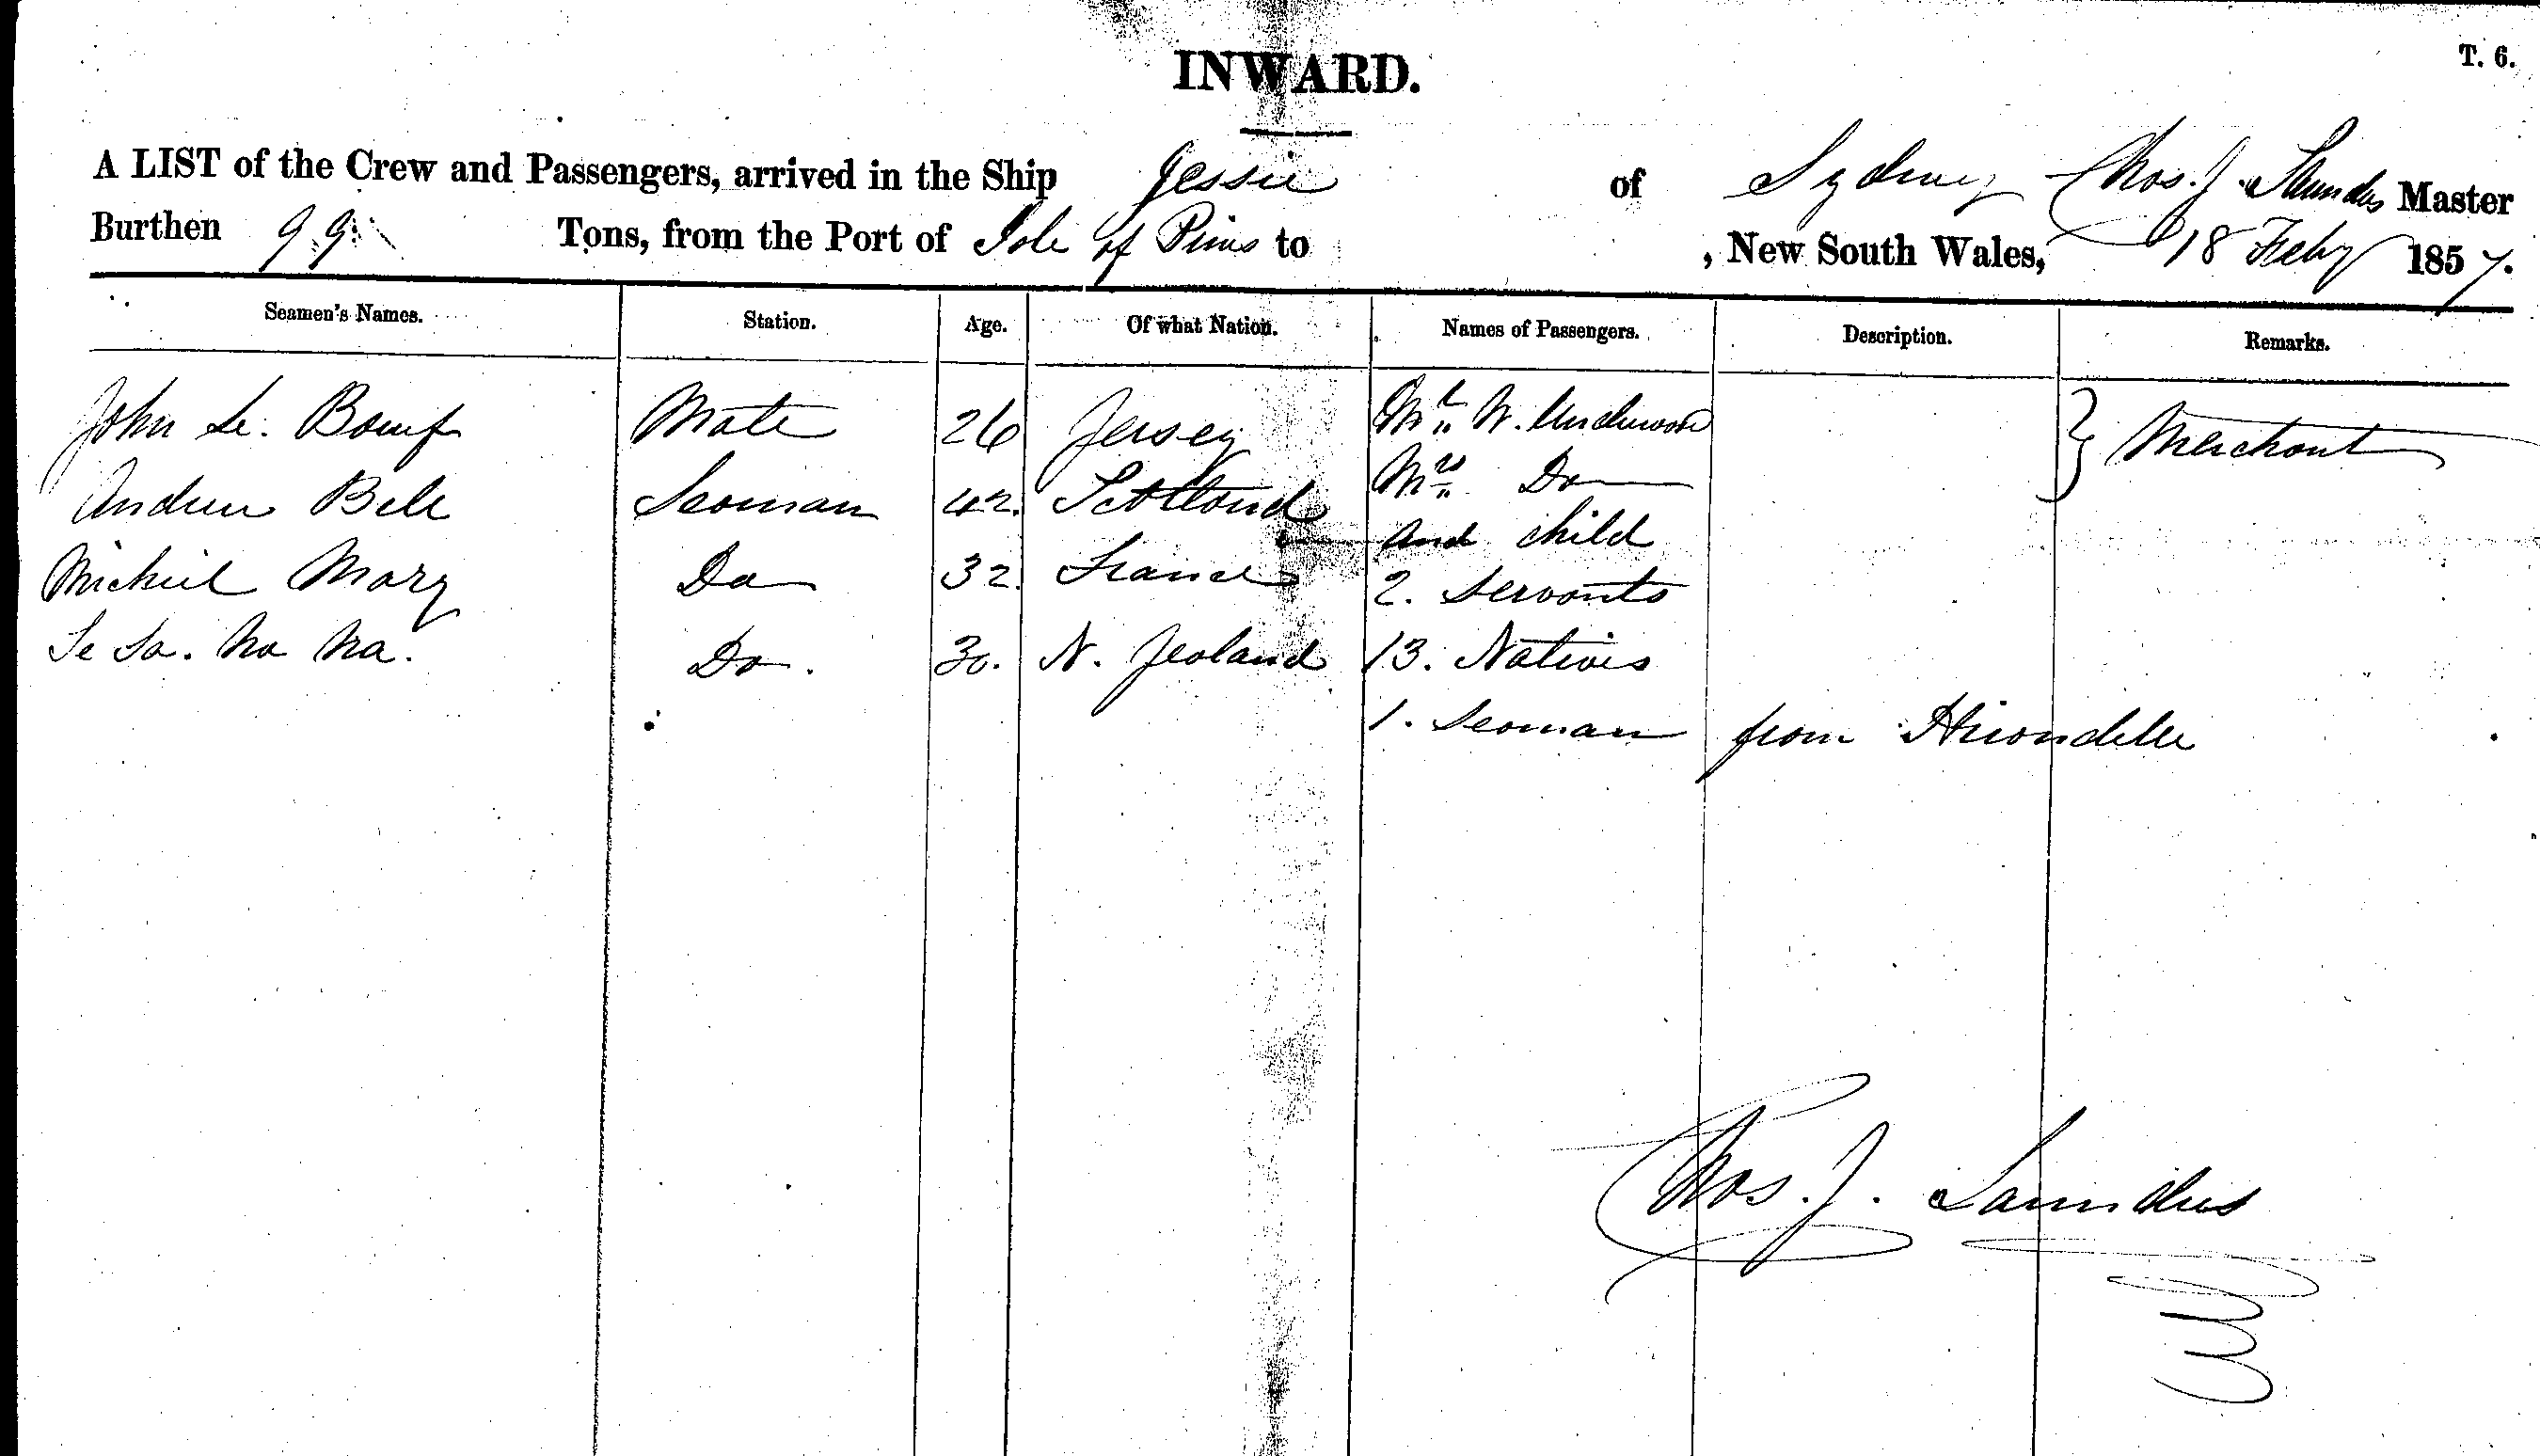 T. 6.
INWARD.
A LIST of the Crew and Passengers, arrived in the Ship Jessie of Sydney Thos. J. Saunders Master
Burthen 99 Tons, from the Port of Isle of Pines to , New South Wales, 18 Feby 1857.
Seamen's Names. Station. Age. Of what Nation. Names of Passengers. Description. Remarks.
John Le. Mate 26 Jersey Mr. W. Underwood } Merchant
Andrew Bell Seaman 42. Scotland Mrs. Do
and child
Michiel Mary Do 32. France 2. Servants
Do. 30. N. Zealand 13. Natives
1. Seaman from Hirondelle
Thos. J. Saunders